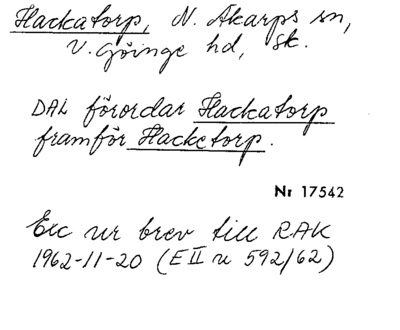 Hackatorp, N. Åkarps sn,
V. Göinge hd, Sk.
DAL förordar Hackatorp
framför Hacketorp.
Nr 17542
Exc ur brev till RAK
1962-11-20 (E II u 592/62)